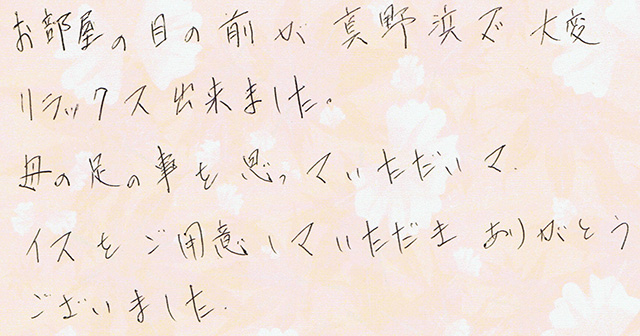 お部屋の目の前が真野浜で大変
リラックス出来ました。
母の足の事を思っていただいて.
イスをご用意していただき ありがとう
ございました.